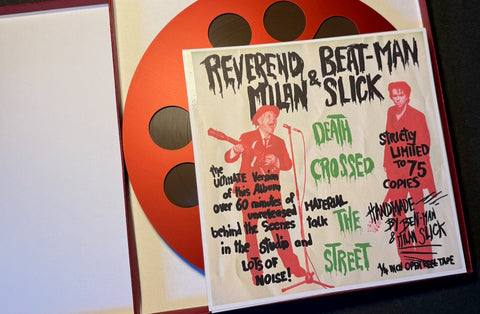 REVEREND BEAT-MAN
& 
MILAN SLICK
DEATH
CROSSED
THE
STREET
the
ULTIMATE Version
of this Album
over 60 minutes of
unreleased
behind the Scenes
MATERIAL
talk
in the Studio and
LOTS OF
NOISE!
STRICTLY
LIMITED
TO 75
COPIES
HANDMADE
BY BEAT-MAN
& MILAN SLICK
1/4 INCH OPEN REEL TAPE